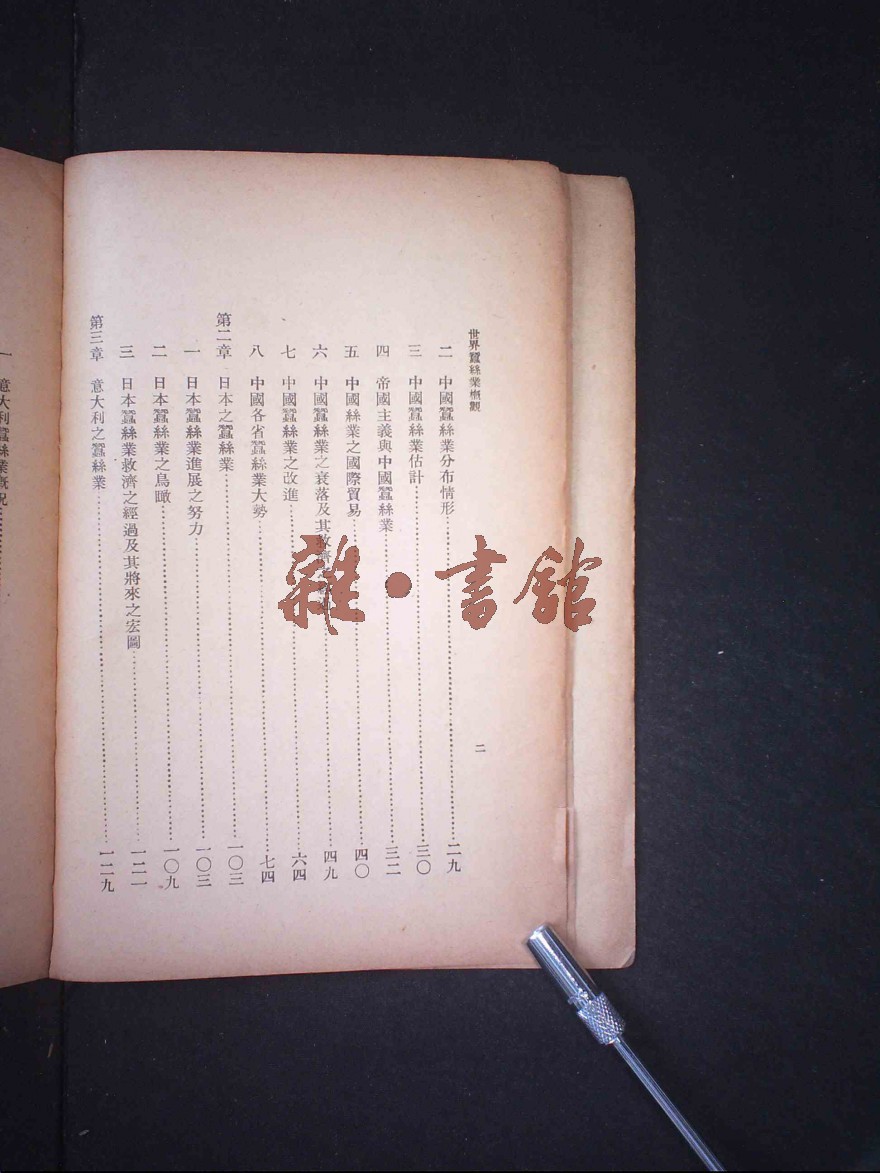 世界蠶絲業概觀
二
二 中國蠶絲業分布情形 二九
三 中國蠶絲業估計 三〇
四 帝國主義與中國蠶絲業 三二
五 中國絲業之國際貿易 四〇
六 中國蠶絲業之衰落及其救濟 四九
七 中國蠶絲業之改進 六四
八 中國各省蠶絲業大勢 七四
第二章 日本之蠶絲業 一〇三
一 日本蠶絲業進展之努力 一〇三
二 日本蠶絲業之鳥瞰 一〇九
三 日本蠶絲業救濟之經過及其將來之宏圖 一二一
第三章 意大利之蠶絲業 一二九
一 意大利蠶絲業概況
雜·書館